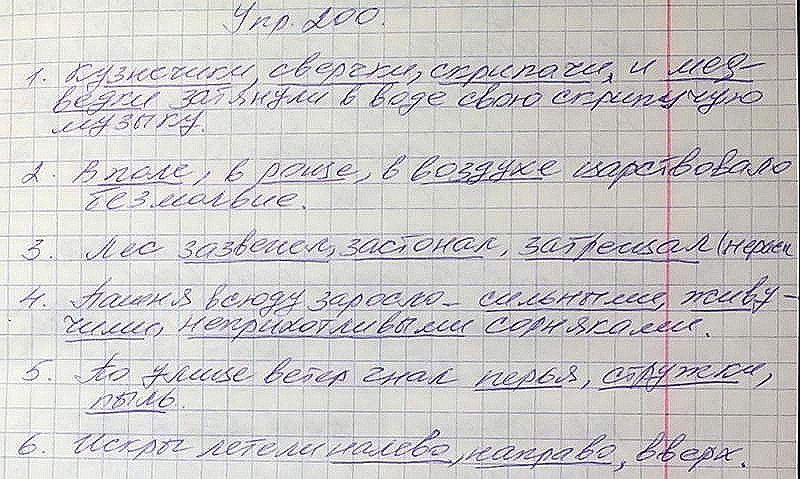 Упр. 200.
1. Кузнечики, сверчки, скрипачи, и мед-
ведки затянули в воде свою скрипучую
музыку.
2. В поле, в роще, в воздухе царствовало
безмолвие.
3. Лес зазвенел, застонал, затрещал (нераспр
4. Пашня всюду заросло - сильными, живу-
чими, неприхотливыми сорняками.
5. По улице ветер гнал перья, стружки,
пыль.
6. Искры летели налево, направо, вверх.